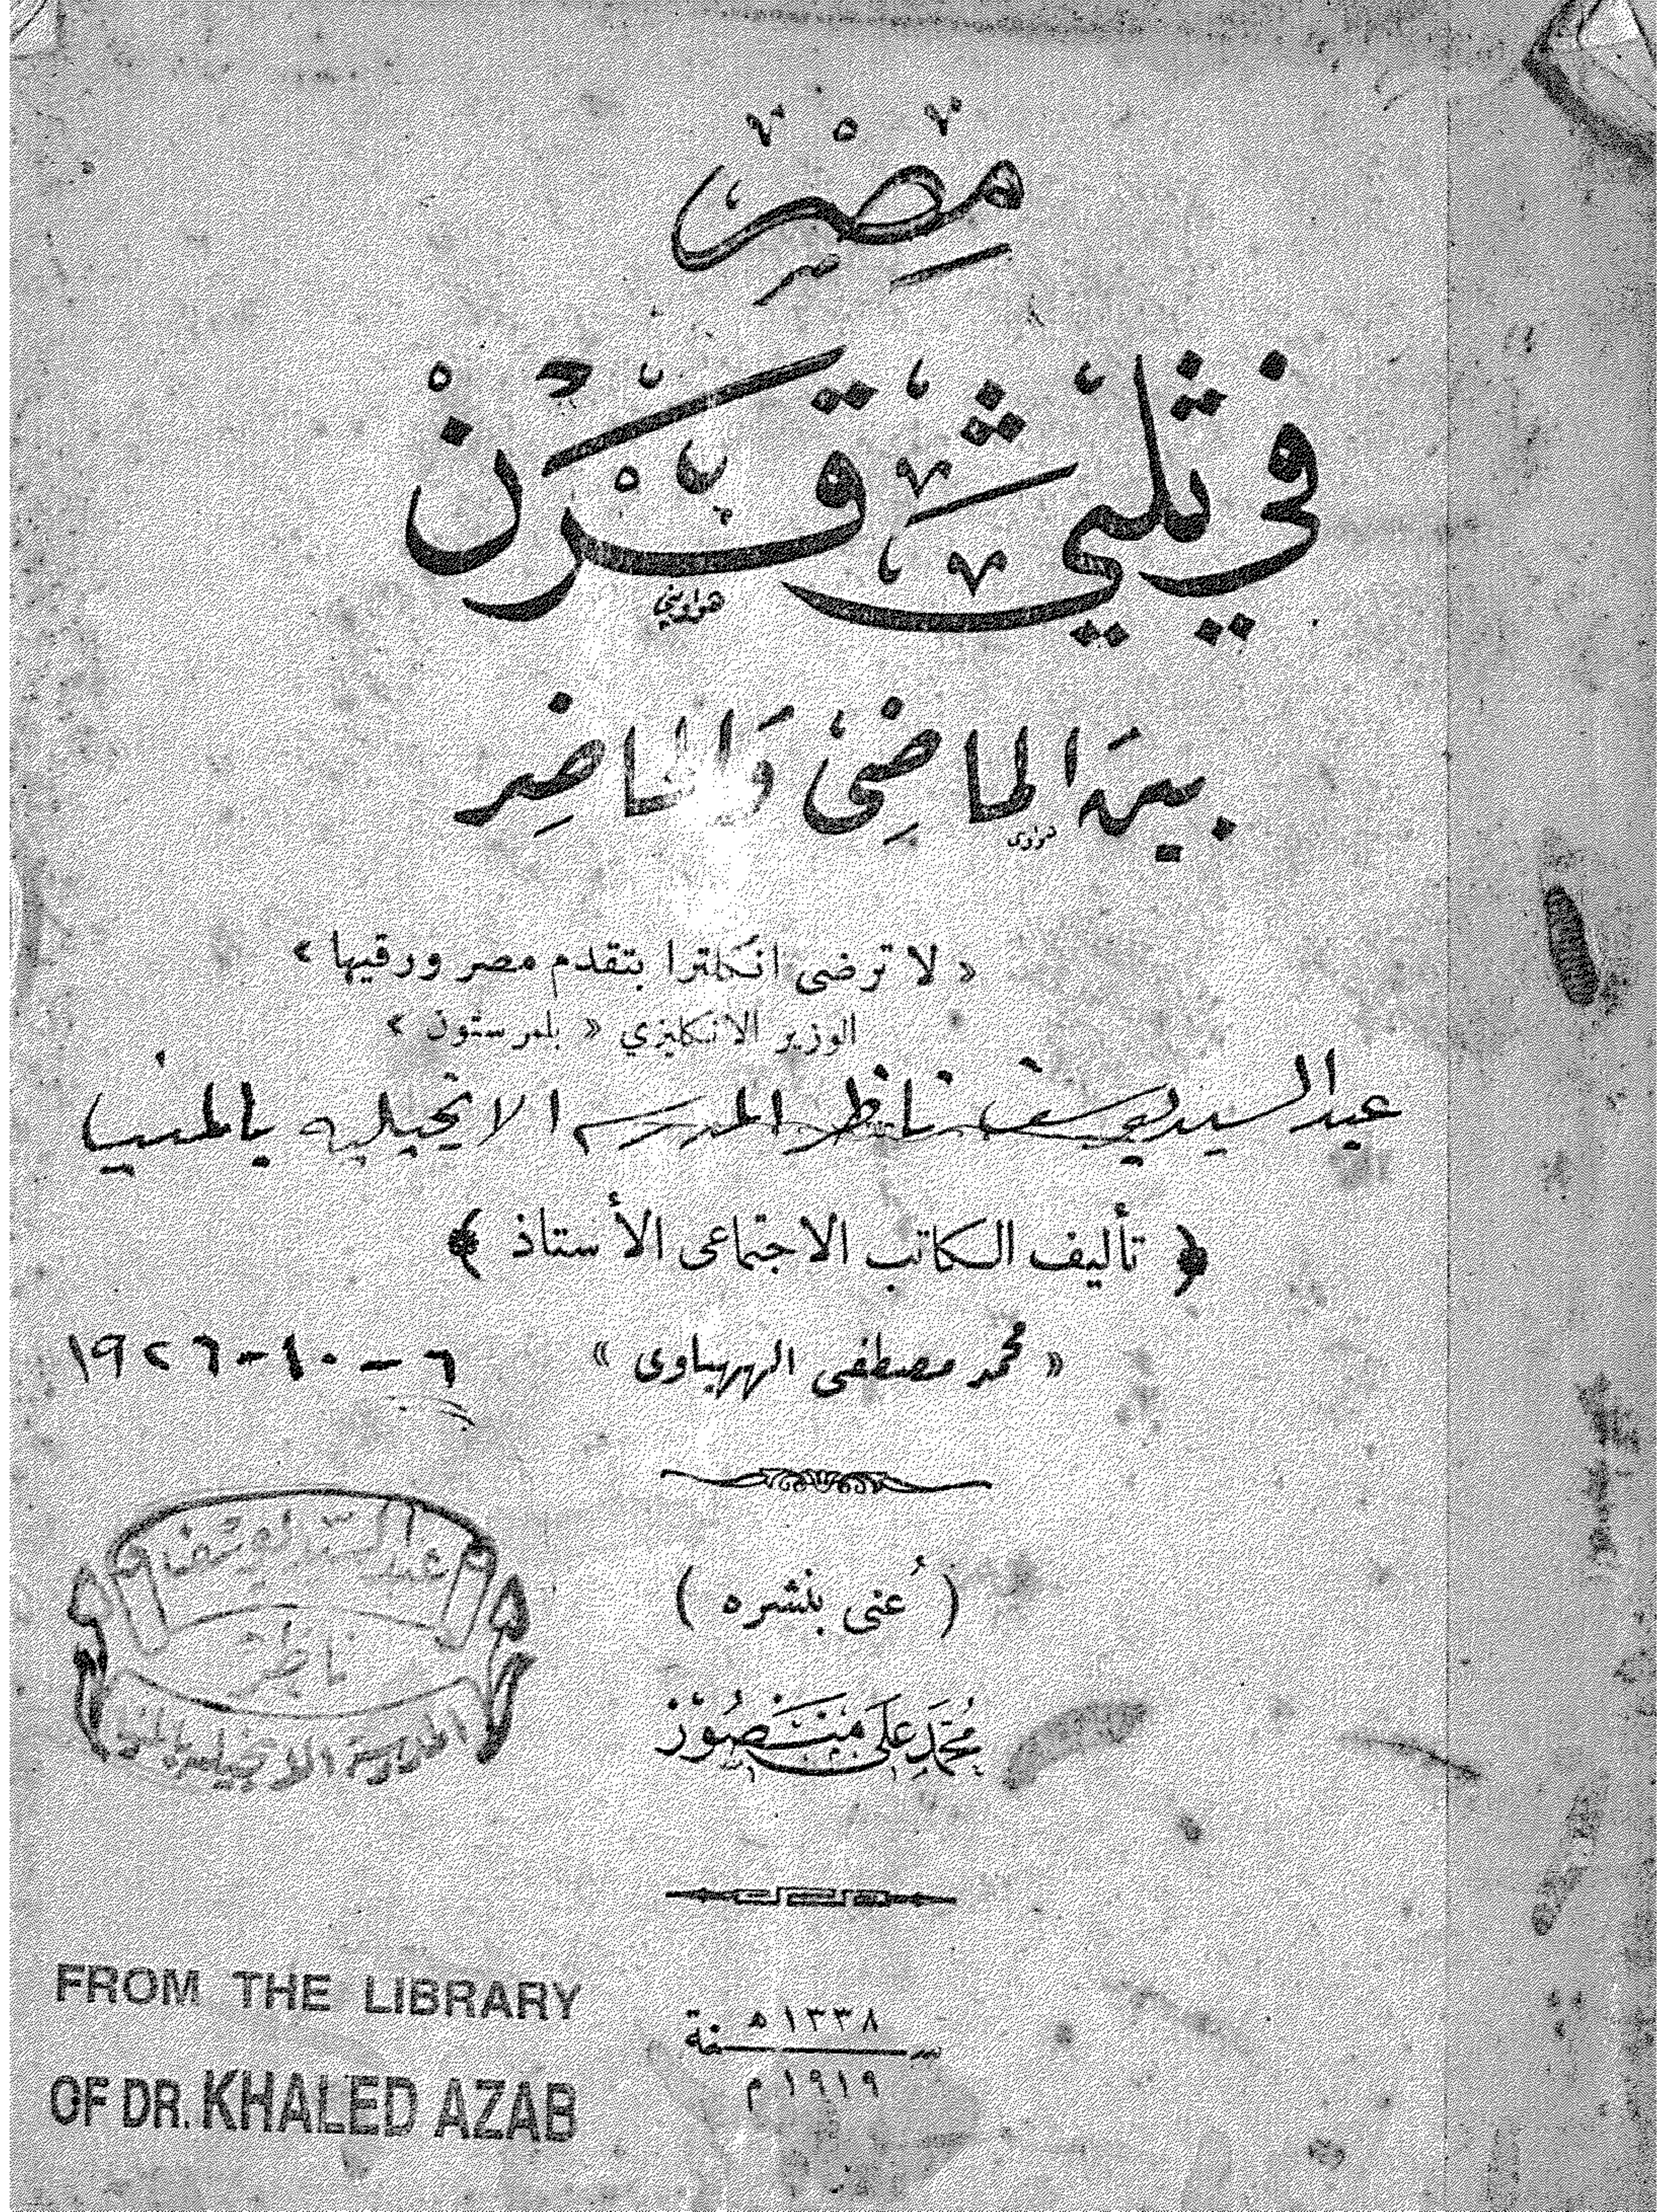 مصر
في ثلثي قرن
هواويني
بين الماضي والحاضر
« لا ترضى انكلترا بتقدم مصر ورقيها »
الوزير الانكليزي « بلمرستون »
عبد السيد يوسف ناظر المدرسه الانجيليه بالمنيا
﴿ تأليف الكاتب الاجتماعى الأستاذ ﴾
« محمد مصطفى الههياوى »
٦-١٠-١٩٢٦
( عُنى بنشره )
محمد على منصور
عبد السيد يوسف
ناظر
المدرسة الانجيلية بالمنيا
سنة ١٣٣٨ ه
١٩١٩ م
FROM THE LIBRARY
OF DR. KHALED AZAB